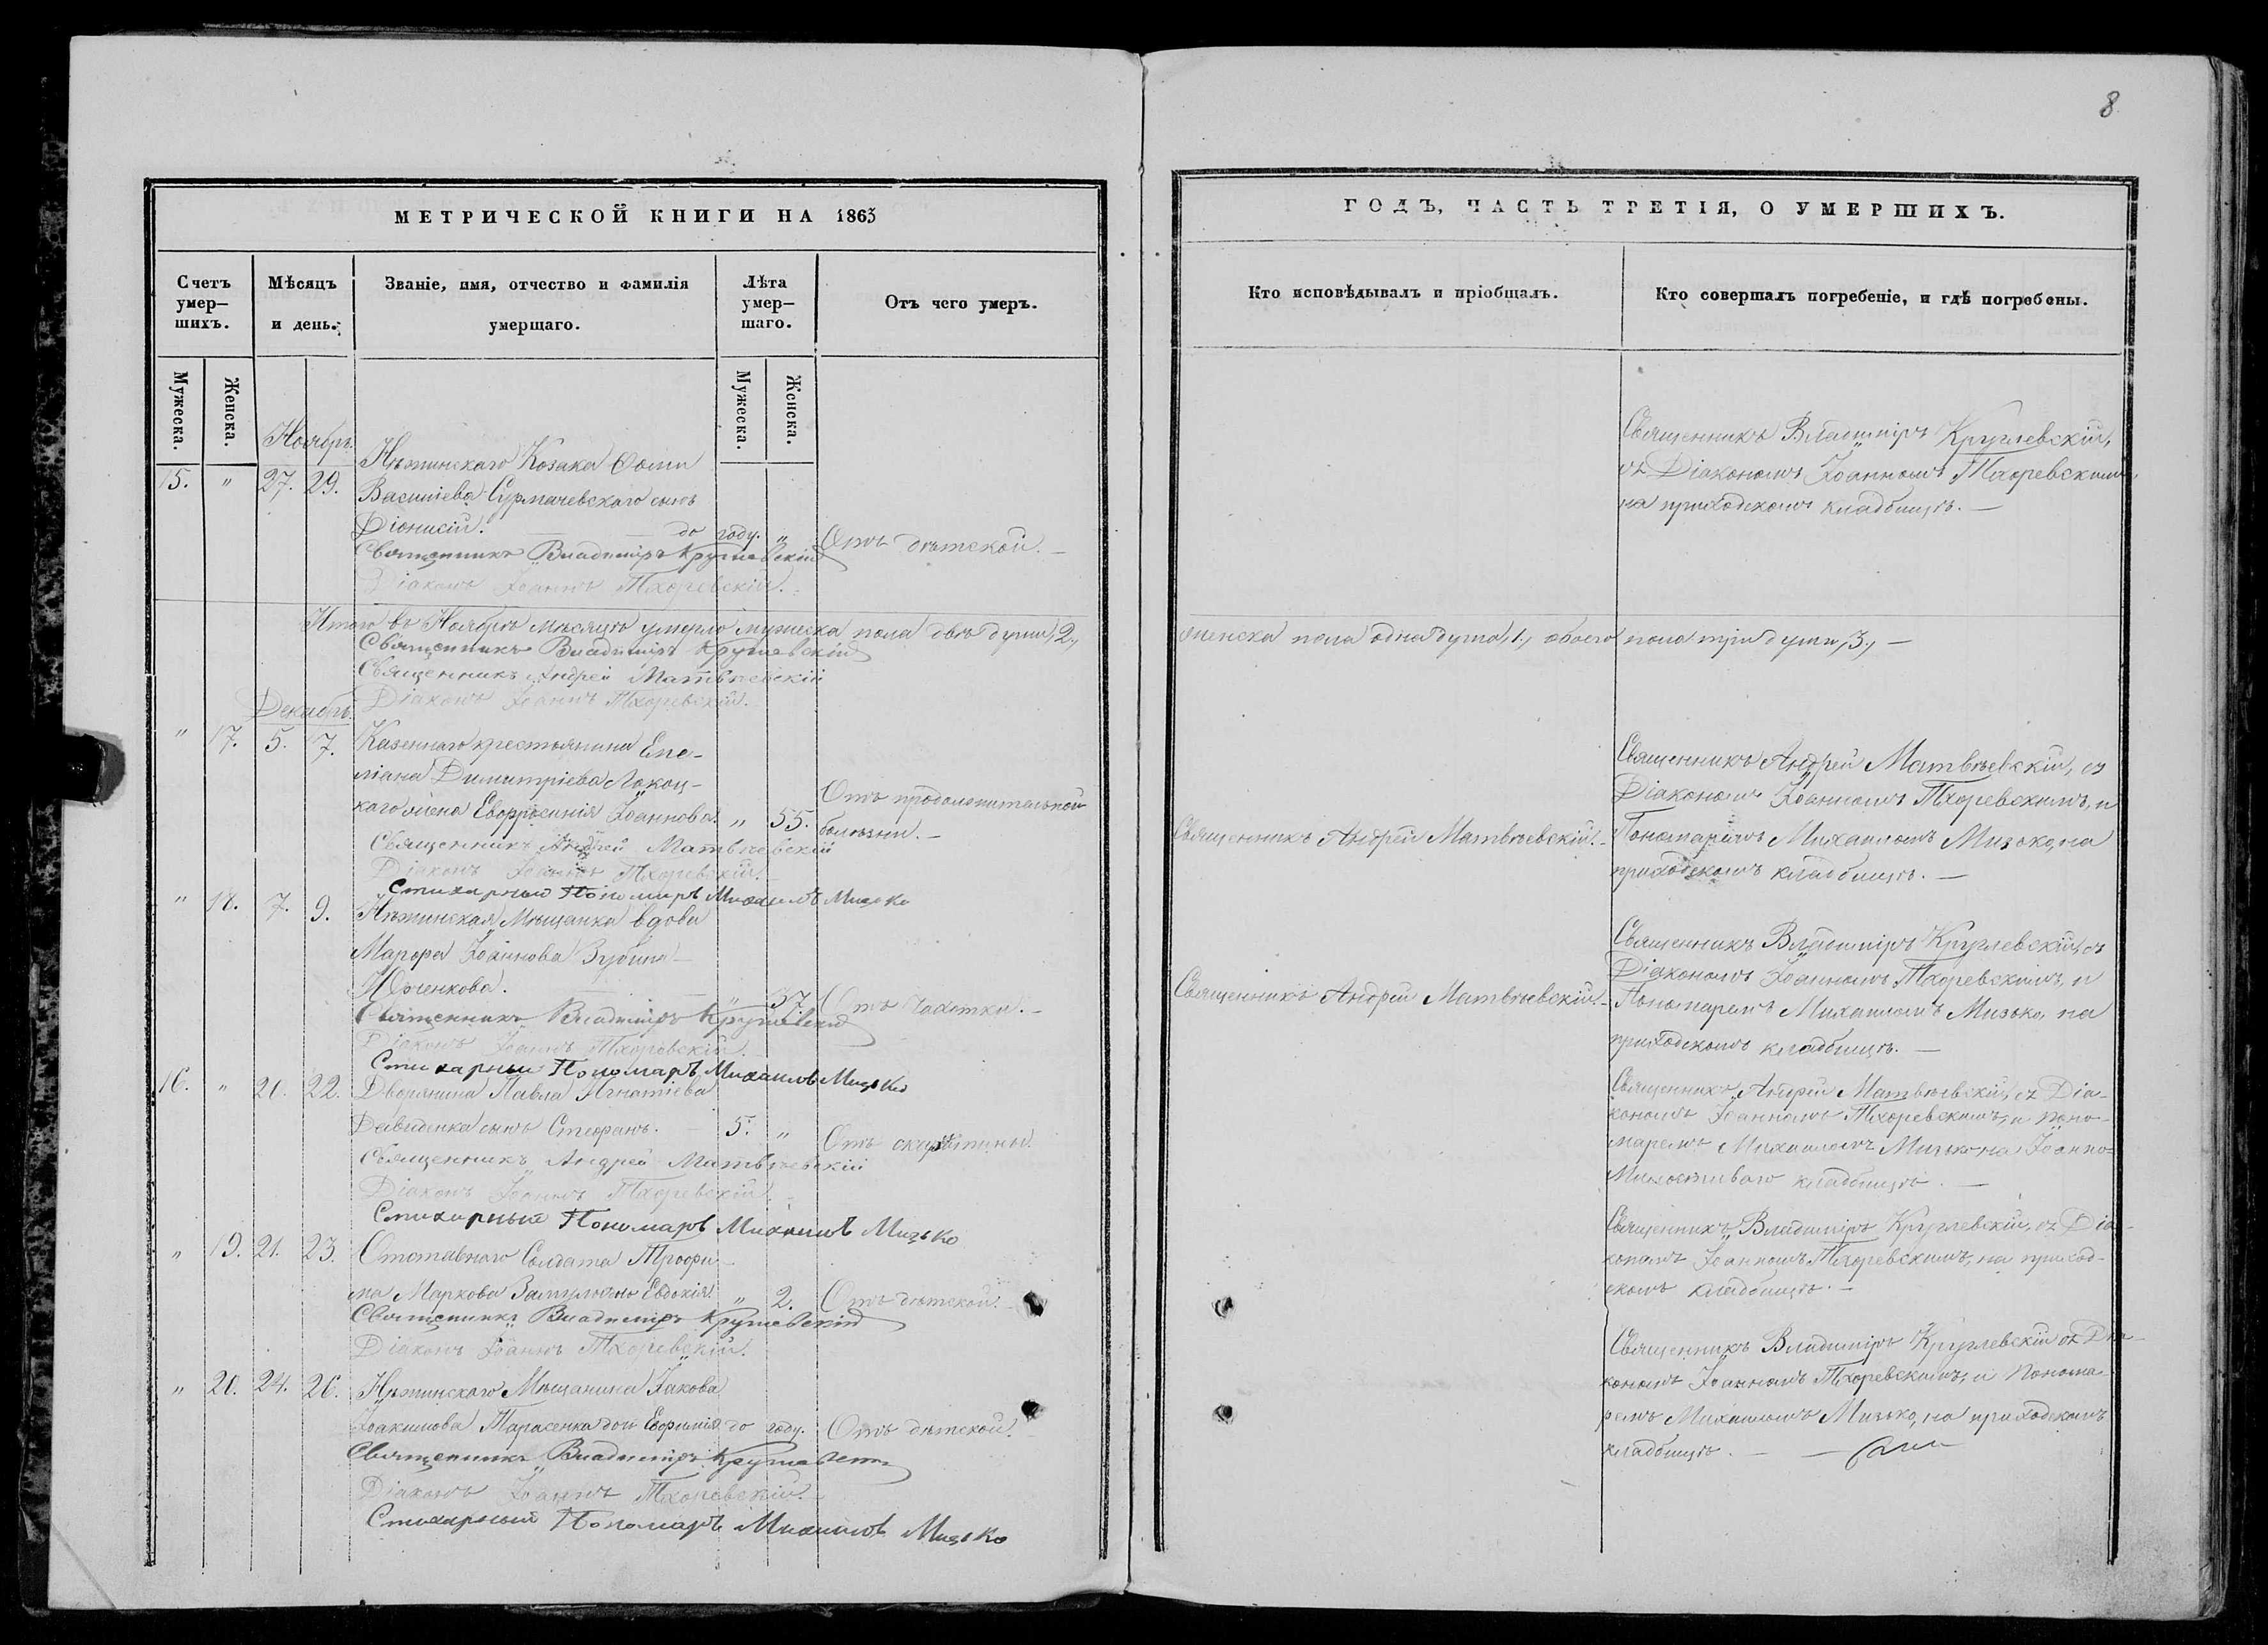 8
МЕТРИЧЕСКОЙ КНИГИ НА 1863
ГОДЪ, ЧАСТЬ ТРЕТІЯ, О УМЕРШИХЪ.
Счетъ умер-шихъ.
Мѣсяцъ и день.
Званіе, имя, отчество и фамилія умершаго.
Лѣта умер-шаго.
Отъ чего умеръ.
Кто исповѣдывалъ и пріобщалъ.
Кто совершалъ погребеніе, и гдѣ погребены.
Мужеска.
Женска.
Мужеска.
Женска.
Ноябрь
15. " 27. 29. Нѣжинскаго Козака Фомы
Василіева Сурмачевскаго сынъ
Діонисій. — до году. " Отъ дѣтской. —
Священникъ Владиміръ Круглевскій
Діаконъ Іоаннъ Тхоревскій.
Священникъ Владиміръ Круглевскій,
съ Діакономъ Іоанномъ Тхоревскимъ,
на приходскомъ кладбищѣ. —
Итого въ Ноябрѣ мѣсяцѣ умерло мужеска пола двѣ души, 2,
женска пола одна душа, 1, обоего пола три души, 3, —
Священникъ Владиміръ Круглевскій
Священникъ Андрей Матвѣевскій
Діаконъ Іоаннъ Тхоревскій.
Декабрь
" 17. 5. 7. Казеннаго крестьянина Еме-
ліана Димитріева
каго жена Евфросинія Іоаннова. " 55. Отъ продолжительной
болѣзни. —
Священникъ Андрей Матвѣевскій
Діаконъ Іоаннъ Тхоревскій.
Стихарный Пономарь Михаилъ Мизько
Священникъ Андрей Матвѣевскій. —
Священникъ Андрей Матвѣевскій, съ
Діакономъ Іоанномъ Тхоревскимъ, и
Пономаремъ Михаиломъ Мизько, на
приходскомъ кладбищѣ. —
" 18. 7. 9. Нѣжинская Мѣщанка вдова
Марфа Іоаннова
Юрченкова. — " 37. Отъ Чахотки. —
Священникъ Владиміръ Круглевскій
Діаконъ Іоаннъ Тхоревскій.
Стихарный Пономарь Михаилъ Мизько
Священникъ Андрей Матвѣевскій. —
Священникъ Владиміръ Круглевскій, съ
Діакономъ Іоанномъ Тхоревскимъ, и
Пономаремъ Михаиломъ Мизько, на
приходскомъ кладбищѣ. —
16. " 20. 22. Дворянина Павла Игнатіева
Давиденка сынъ Стефанъ. — 5. " Отъ скарлатины.
Священникъ Андрей Матвѣевскій
Діаконъ Іоаннъ Тхоревскій.
Стихарный Пономарь Михаилъ Мизько
Священникъ Андрей Матвѣевскій, съ Діа-
кономъ Іоанномъ Тхоревскимъ, и Поно-
маремъ Михаиломъ Мизько на Іоанно-
Милостиваго кладбищѣ. —
" 19. 21. 23. Отставного Солдата Трофи-
ма Маркова Евдокія. " 2. Отъ дѣтской.
Священникъ Владиміръ Круглевскій
Діаконъ Іоаннъ Тхоревскій.
Священникъ Владиміръ Круглевскій, съ Діа-
кономъ Іоанномъ Тхоревскимъ, на приход-
скомъ кладбищѣ. —
" 20. 24. 26. Нѣжинскаго Мѣщанина Іакова
Іоакимова Тарасенка дочь Евфимія до году. Отъ дѣтской.
Священникъ Владиміръ Круглевскій
Діаконъ Іоаннъ Тхоревскій.
Стихарный Пономарь Михаилъ Мизько
Священникъ Владиміръ Круглевскій съ Діа-
кономъ Іоанномъ Тхоревскимъ, и Понома-
ремъ Михаиломъ Мизько, на приходскомъ
кладбищѣ. —